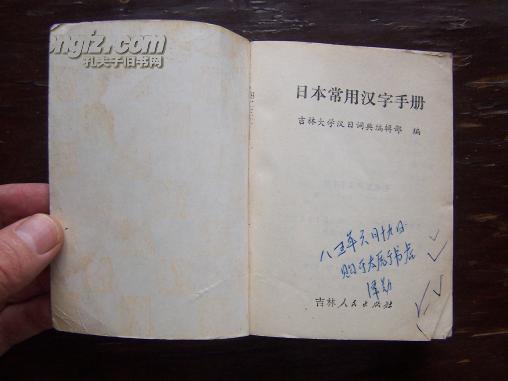 ongzi.com
孔夫子旧书网
日本常用汉字手册
吉林大学汉日词典编辑部 编
八三年六月十九日
购于太原书店
泽勤
吉林人民出版社